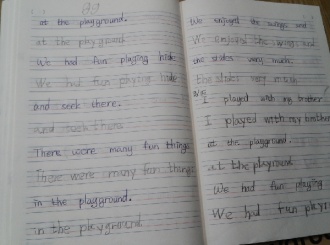 at the playground.
at the playground
We had fun playing hide
We had fun playing hide
and seek there.
and seek there
There were many fun things
There were many fun things
in the playground.
in the playground.
We enjoyed the swings and
We enjoyed the swings and
the slides very much.
the slides very much
I played with my brother
I played with my brother
at the playground.
at the playground
We had fun playing
We had fun playi